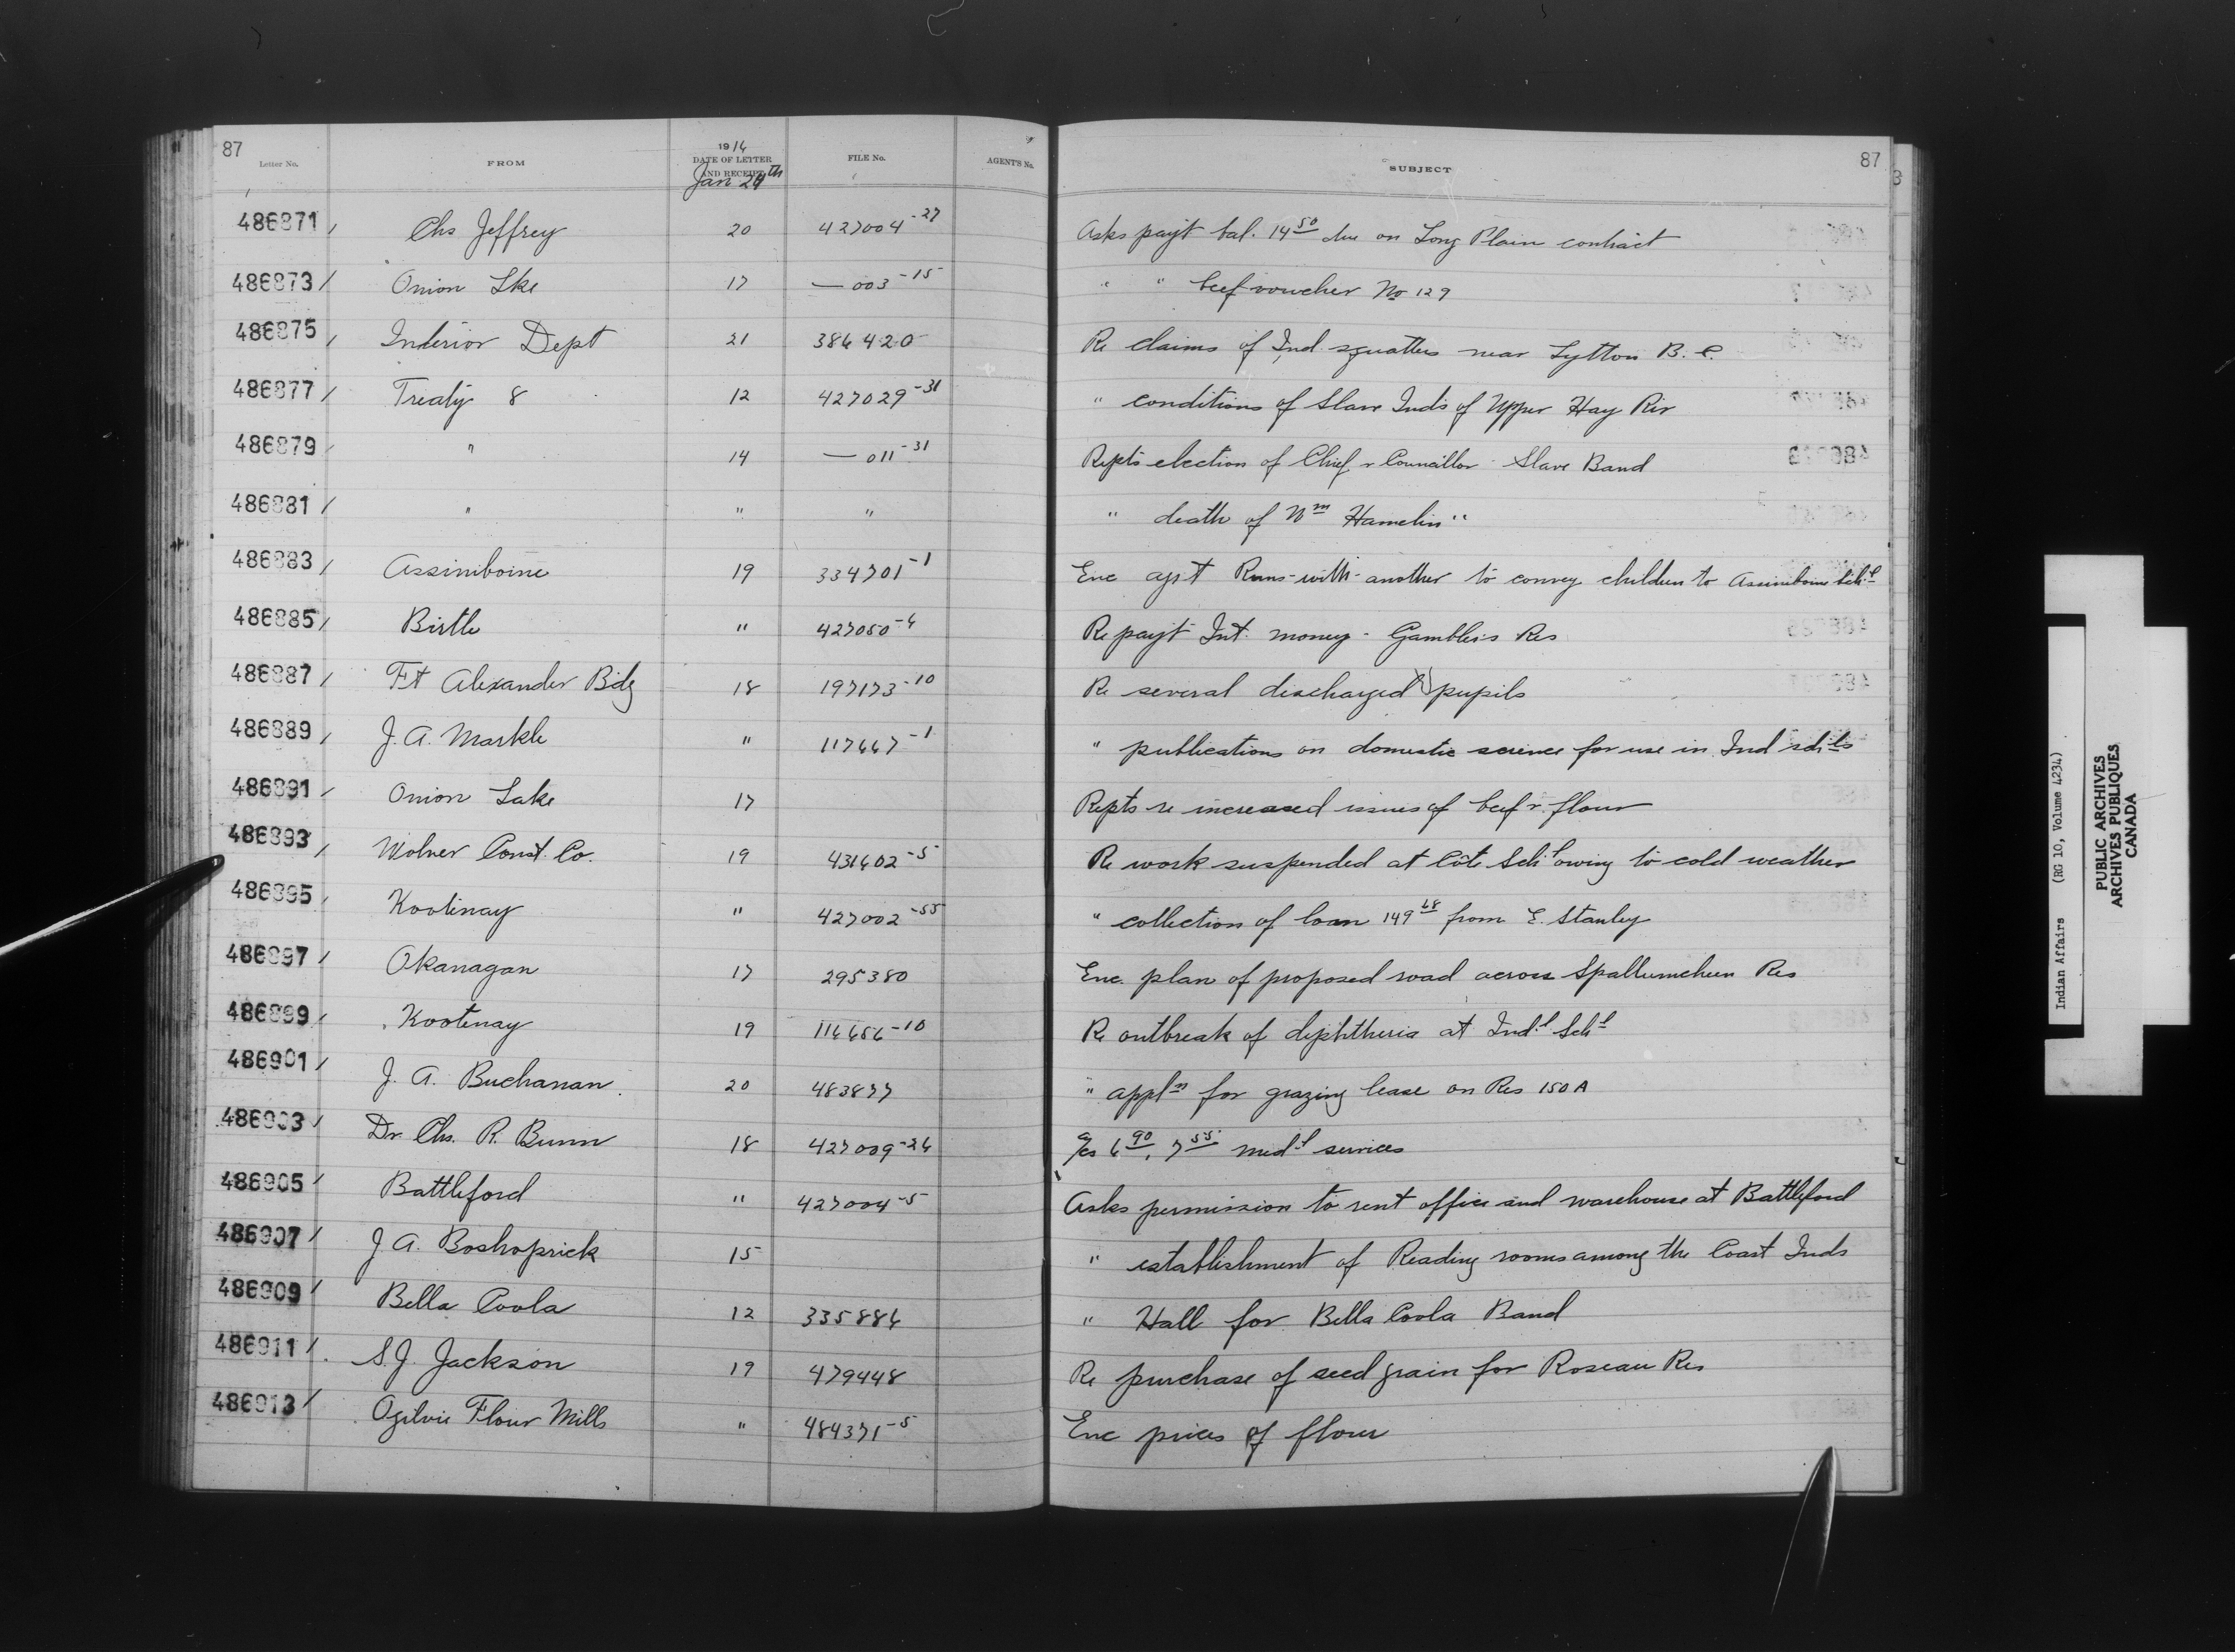 87
Letter No. FROM 1914 DATE OF LETTER AND RECEIPT FILE No. AGENT'S No. SUBJECT 87
Jan 24th
486871 / Chs Jeffrey 20 427004-27 Asks payt bal. 14 50 due on Long Plain contract
486873 / Onion Lke 17 — 003-15 " " beef voucher No 129
486875 / Interior Dept 21 386420 Re claims of Ind. squatters near Lytton B.C.
486877 / Treaty 8 12 427029-31 " conditions of Slave Inds of Upper Hay Riv
486879 / " 14 — 011-31 Repts election of Chief & Councillor - Slave Band
486881 / " " " " death of Wm Hamelin "
486883 / Assiniboine 19 334701-1 Enc agst Runs-with-another to convey children to Assiniboine Schl
486885 / Birtle " 427050-4 Re payt Int. money - Gamblers Res
486887 / Ft Alexander Bdg 18 197173-10 Re several discharged pupils
486889 / J. A. Markle " 117447-1 " publications on domestic science for use in Ind schls
486891 / Onion Lake 17 Repts re increased issues of beef & flour
486893 / Const. Co. 19 431402-5 Re work suspended at Côté Schl owing to cold weather
486895 / Kootenay " 427002-55 " collection of loan 149 68 from E. Stanley
486897 / Okanagan 17 295380 Enc. plan of proposed road across Spallumcheen Res
486899 / Kootenay 19 116656-10 Re outbreak of diphtheria at Indl Schl
486901 / J. A. Buchanan 20 483877 " appln for grazing lease on Res 150A
486903 / Dr. Chs. R. Bunn 18 427009-26 a/cs 6 90, 7 55 medl services
486905 / Battleford " 427004-5 Asks permission to rent office and warehouse at Battleford
486907 / J A. Boshoprick 15 " establishment of Reading rooms among the Coast Inds
486909 / Bella Coola 12 335886 " Hall for Bella Coola Band
486911 / S. J. Jackson 19 479448 Re purchase of seed grain for Roseau Res
486913 / Ogilvie Flour Mills " 484371-5 Enc prices of flour
Indian Affairs (RG 10, Volume 4234)
PUBLIC ARCHIVES
ARCHIVES PUBLIQUES
CANADA